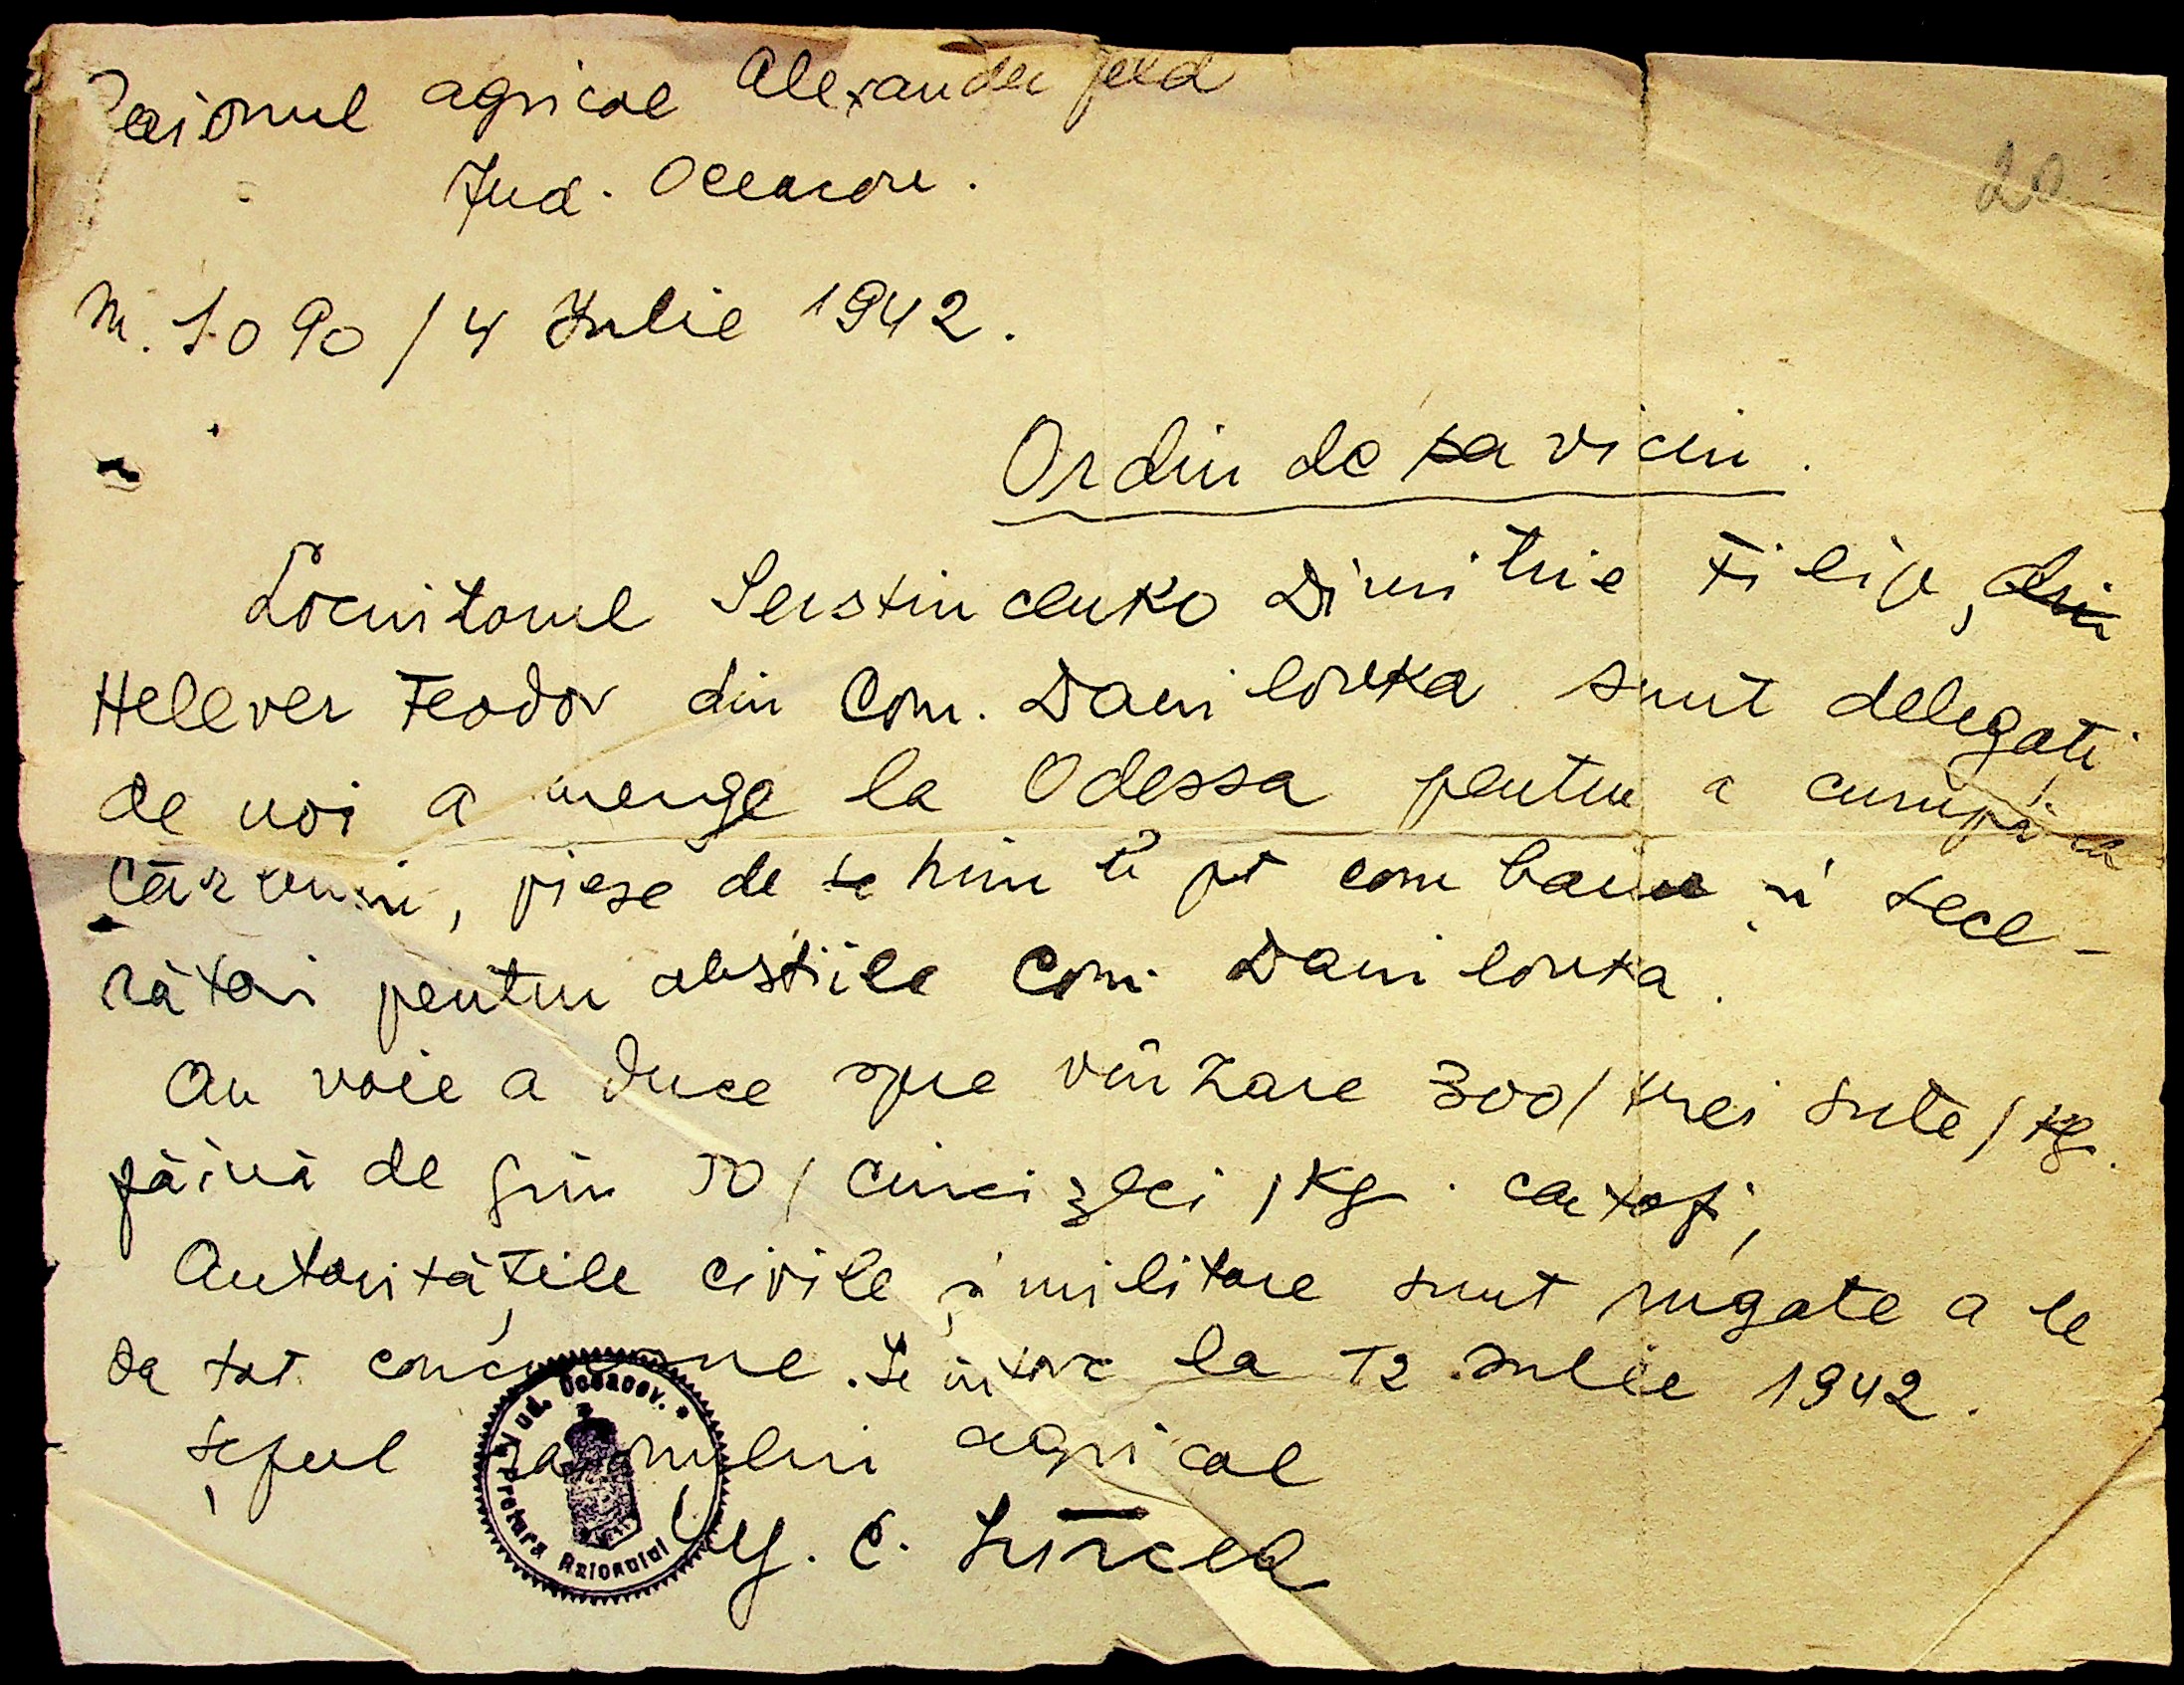 Raionul agricol Alexanderfeld
Jud. Oceacov.
20
Nr. 1090 / 4 Iulie 1942.
Ordin de serviciu.
Locuitorul Serstincenko Dimitrie Filip, din
Helever Feodor din Com. Danilovka sunt delegati
de noi a merge la Odessa pentru a cumpăra
cărbuni, piese de schimb pt combaine și sece-
rători pentru obștiile Com. Danilovka.
Au voie a duce spre vînzare 300/trei sute/kg.
păină de grîu 50/cincizeci/kg. cartofi,
Autoritățile civile și militare sunt rugate a le
da tot concursul. Se întorc la 12 Iulie 1942.
Șeful raionului agricol
C.
Jud. Oceacov. * Pretura Raionului